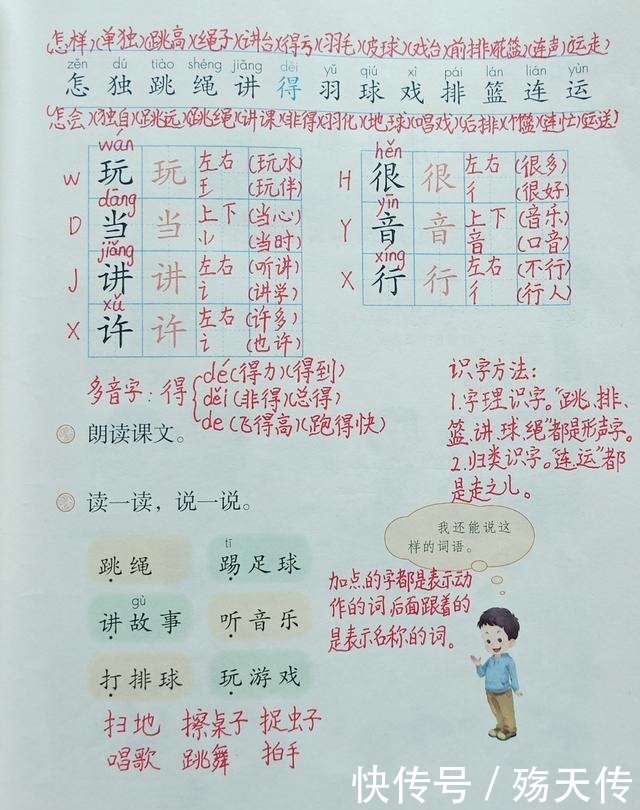 怎样)(单独)(跳高)(绳子)(讲台)(得亏)(羽毛)(皮球)(戏台)(前排)(花篮)(连声)(运走)
zěn dú tiào shéng jiǎng děi yǔ qiú xì pái lán lián yùn
怎独跳绳讲得羽球戏排篮连运
怎会)(独自)(跳远)(跳绳)(讲课)(非得)(羽化)(地球)(唱戏)(后排)(个篮)(连忙)(运送)
wán
W 玩 玩 左右 (玩水)
王 (玩伴)
dāng
D 当 当 上下 (当心)
⺌ (当时)
jiǎng
J 讲 讲 左右 (听讲)
讠 (讲学)
xǔ
X 许 许 左右 (许多)
讠 (也许)
hěn
H 很 很 左右 (很多)
彳 (很好)
yīn
Y 音 音 上下 (音乐)
音 (口音)
xíng
X 行 行 左右 (不行)
彳 (行人)
多音字:得
dé(得力)(得到)
děi(非得)(总得)
de(飞得高)(跑得快)
识字方法:
1.字理识字。"跳、排、
篮、讲、球、绳"都是形声字。
2.归类识字。"连、运"都
是走之儿。
朗读课文。
读一读，说一说。
我还能说这
样的词语。
tī
跳绳 踢足球
gù
讲故事 听音乐
打排球 玩游戏
加点的字都是表示动
作的词,后面跟着的
是表示名称的词。
扫地 擦桌子 捉虫子
唱歌 跳舞 拍手
快传号 / 殇天传